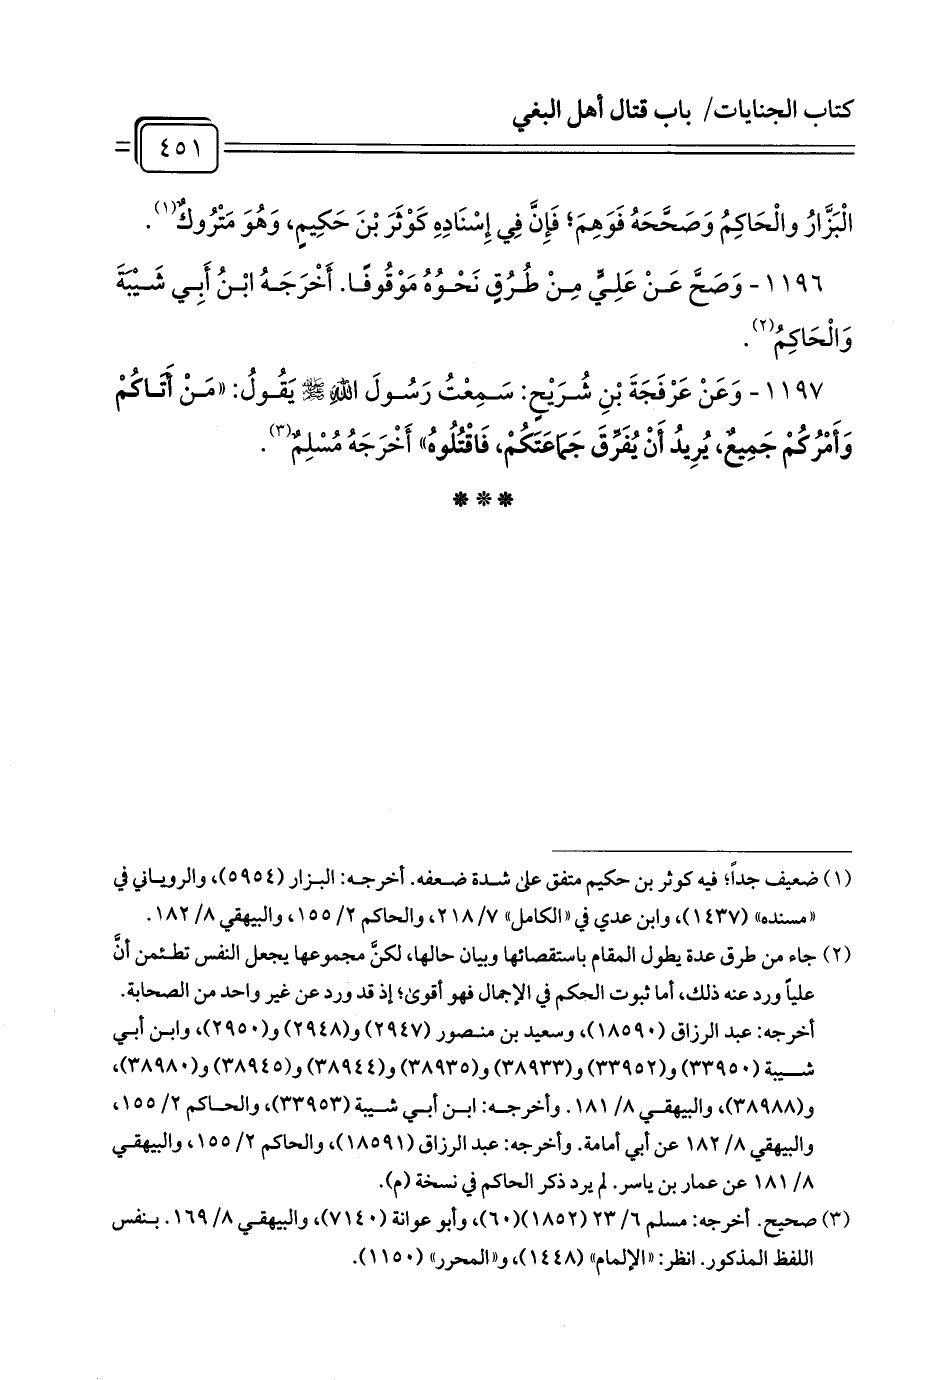 كتاب الجنايات/ باب قتال أهل البغي
٤٥١
الْبَزَّارُ والْحَاكِمُ وَصَحَّحَهُ فَوَهِمَ؛ فَإِنَّ فِي إِسْنَادِهِ كَوْثَرَ بْنَ حَكِيمٍ، وَهُوَ مَتْرُوكٌ(١).
١١٩٦- وَصَحَّ عَنْ عَلِيٍّ مِنْ طُرُقٍ نَحْوُهُ مَوْقُوفًا. أَخْرَجَهُ ابْنُ أَبِي شَيْبَةَ
وَالْحَاكِمُ(٢).
١١٩٧- وَعَنْ عَرْفَجَةَ بْنِ شُرَيْحٍ: سَمِعْتُ رَسُولَ اللهِ ﷺ يَقُولُ: «مَنْ أَتَاكُمْ
وَأَمْرُكُمْ جَمِيعٌ، يُرِيدُ أَنْ يُفَرِّقَ جَمَاعَتَكُمْ، فَاقْتُلُوهُ» أَخْرَجَهُ مُسْلِمٌ(٣).
***
(١) ضعيف جداً؛ فيه كوثر بن حكيم متفق على شدة ضعفه. أخرجه: البزار (٥٩٥٤)، والروياني في
«مسنده» (١٤٣٧)، وابن عدي في «الكامل» ٧/ ٢١٨، والحاكم ٢/ ١٥٥، والبيهقي ٨/ ١٨٢.
(٢) جاء من طرق عدة يطول المقام باستقصائها وبيان حالها، لكنَّ مجموعها يجعل النفس تطئمن أنَّ
علياً ورد عنه ذلك، أما ثبوت الحكم في الإجمال فهو أقوى؛ إذ قد ورد عن غير واحد من الصحابة.
أخرجه: عبد الرزاق (١٨٥٩٠)، وسعيد بن منصور (٢٩٤٧) و(٢٩٤٨) و(٢٩٥٠)، وابن أبي
شيبة (٣٣٩٥٠) و(٣٣٩٥٢) و(٣٨٩٣٣) و(٣٨٩٣٥) و(٣٨٩٤٤) و(٣٨٩٤٥) و(٣٨٩٨٠)،
و(٣٨٩٨٨)، والبيهقي ٨/ ١٨١. وأخرجه: ابن أبي شيبة (٣٣٩٥٣)، والحاكم ٢/ ١٥٥،
والبيهقي ٨/ ١٨٢ عن أبي أمامة. وأخرجه: عبد الرزاق (١٨٥٩١)، والحاكم ٢/ ١٥٥، والبيهقي
٨/ ١٨١ عن عمار بن ياسر. لم يرد ذكر الحاكم في نسخة (م).
(٣) صحيح. أخرجه: مسلم ٦/ ٢٣ (١٨٥٢)(٦٠)، وأبو عوانة (٧١٤٠)، والبيهقي ٨/ ١٦٩. بنفس
اللفظ المذكور. انظر: «الإلمام» (١٤٤٨)، و«المحرر» (١١٥٠).